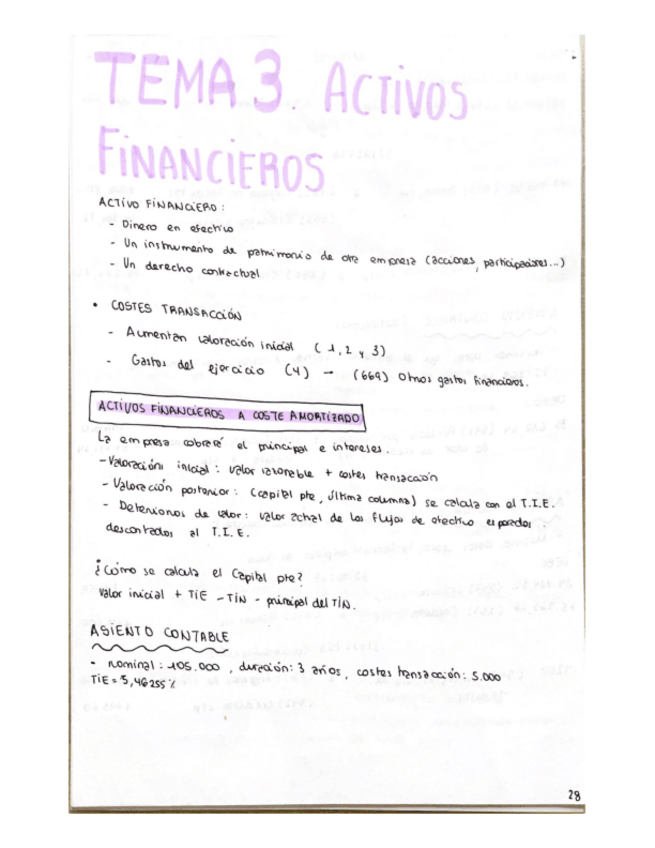 TEMA 3. ACTIVOS
FINANCIEROS
ACTIVO FINANCIERO:
- Dinero en efectivo
- Un instrumento de patrimonio de otra empresa (acciones, participaciones...)
- Un derecho contractual
• COSTES TRANSACCIÓN
- Aumentan valoración inicial (1, 2 y 3)
- Gastos del ejercicio (4) → (669) Otros gastos financieros.
ACTIVOS FINANCIEROS A COSTE AMORTIZADO
La empresa cobrará el principal e intereses.
- Valoración inicial: valor razonable + costes transacción
- Valoración posterior: (capital pte, última columna) se calcula con el T.I.E.
- Deterioros de valor: valor actual de los flujos de efectivo esperados
descontados al T.I.E.
¿Cómo se calcula el Capital pte?
Valor inicial + TIE - TIN - principal del TIN.
ASIENTO CONTABLE
- nominal: 105.000, duración: 3 años, costes transacción: 5.000
TIE = 5,46255%
28